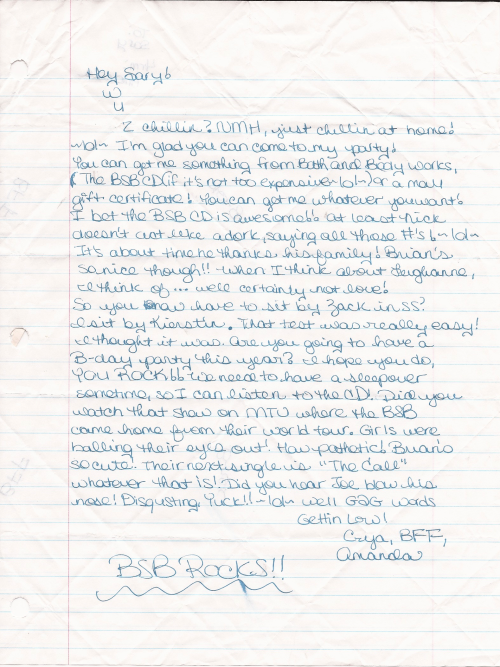 Hey Sary!
W
U
2 chillin? NMH, just chillin at home!
~lol~ I'm glad you can come to my party!
You can get me something from Bath and Body works,
(The BSB CD (if it's not too expensive~lol~) or a mall
gift certificate! You can get me whatever you want!
I bet the BSB CD is awesome!! at least Nick
doesn't act like a dork, saying all those #'s! ~lol~
It's about time he thanks his family! Brian's
so nice though!! when I think about Leighanne,
I think of... well certainly not love!
So you have to sit by Zack in SS?
I sit by Kierstin. That test was really easy!
I thought it was. Are you going to have a
B-day party this year? I hope you do,
YOU ROCK!! We need to have a sleepover
sometime, so I can listen to the CD! Did you
watch that show on MTV where the BSB
came home from their world tour. Girls were
balling their eyes out! How pathetic! Brian's
so cute. Their next single is "The Call"
whatever that is! Did you hear Joe blow his
nose! Disgusting, Yuck!! ~lol~ well G2G words
Gettin Low!
Crya, BFF,
Amanda
BSB ROCKS!!